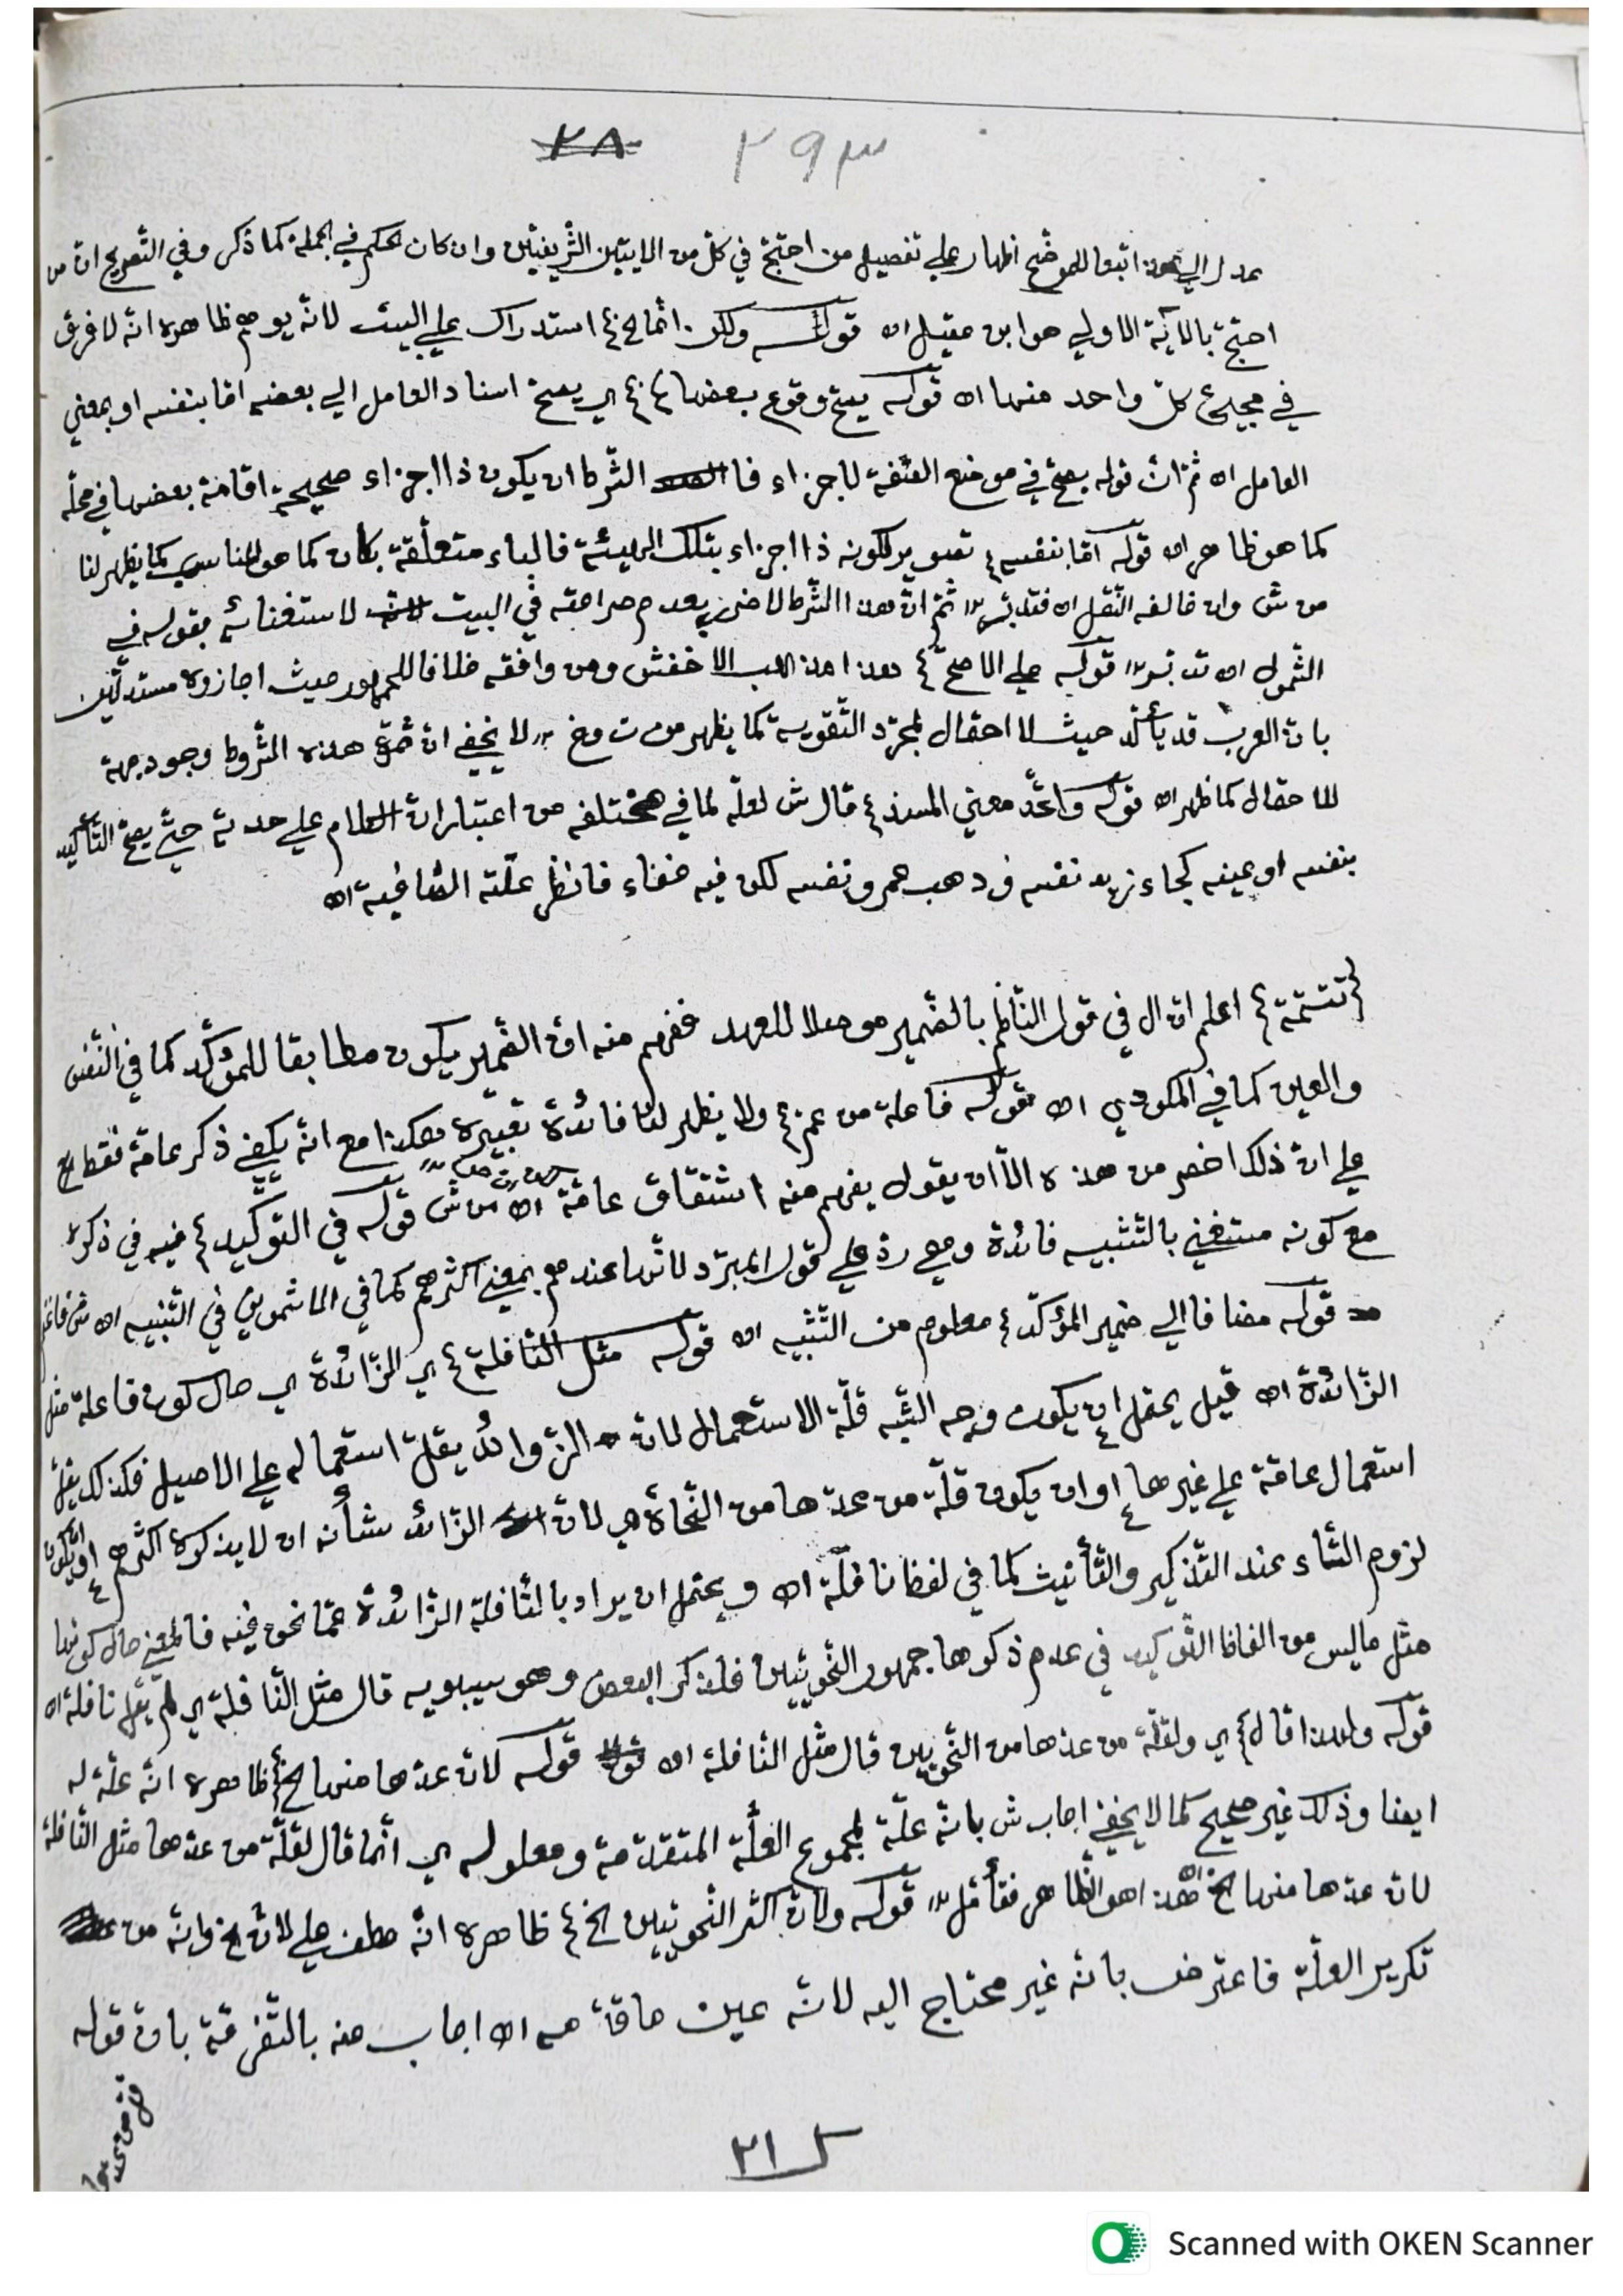 ٢٨ ٢٩٣
عدل الي هذه اتبعا للموضح اظهار علي تفصيل من احتج في كل من الايتين الشريفتين وان كان الحكم في الجملة كما ذكر وفي التصريح ان من
احتج بالآية الاولي هو ابن عقيل اه قوله ولكن انما الخ استدراك علي البيت لانه يوهم ظاهره انه لا فرق
في مجيء كل واحد منها اه قوله يصح وقوع بعضها ي يصح اسناد العامل الي بعضه اما بنفسه او بمعني
العامل اه ثم ان قوله يصح في موضع الصفة لاجزاء فا الشرط ان يكون ذا اجزاء صحيحة اقامة بعضها في محله
كما هو ظاهر اه قوله اما بنفسه تصوير لكونه ذا اجزاء بتلك الهيئة فالباء متعلقة بكان كما هو المناسب كما يظهر لنا
من ش وان خالفه النقل اه فتدبر ثم ان هذا الشرط لا ضرر بعدم صراحته في البيت لاستغنائه بقوله في
الشمول اه تدبر قوله علي الاصح هذا مذهب الاخفش ومن وافقه خلافا للجمهور حيث اجازوه مستدلين
بان العرب قد يأكد حيث لا احتمال لمجرد التقوية كما يظهر من ت وخ لا يخفي ان ثمرة هذه الشروط وجود جهة
الاحتمال كما ظهر اه قوله واتحد معني المسند قال ش لعله لما في مختلفه من اعتبار ان الكلام علي حدته حتي يصح التأكيد
بنفسه او عينه كجاء زيد نفسه وذهب عمرو نفسه لكن فيه خفاء فانظر علته الصافية اه
تتمة اعلم ان ال في قول الناظم بالضمير موصلا للعهد ففهم منه ان الضمير يكون مطابقا للمؤكد كما في النفس
والعين كما في المكودي اه قوله فاعلة من عم ولا يظهر لنا فائدة تعبيره هكذا مع انه يكفي ذكر عامة فقط الخ
علي ان ذلك اخصر من هذه الا ان يقول يفهم منه اشتقاق عامة اه من ش قوله في التوكيد فيه في ذكره
مع كونه مستغني بالتنبيه فائدة وهي رد علي قول المبرد لانها عندهم بمعني اكثرهم كما في الاشموني في التنبيه اه
قوله مضافا الي ضمير المؤكد معلوم من التنبيه اه قوله مثل النافلة ي الزائدة ي حال كون فاعلة مثل
الزائدة اه قيل يحتمل ان يكون وجه الشبه قلة الاستعمال لان الزوائد يقل استعماله علي الاصيل فكذلك يقل
استعمال عامة علي غيرها او ان يكون قلة من عدها من النحاة ي لان الزائد شأنه ان لا يذكره اكثرهم او ان يكون
لزوم التاء عند التذكير والتأنيث كما في لفظ نافلة اه ويحتمل ان يراد بالنافلة الزائدة عما نحن فيه فالمعني حال كونها
مثل ما ليس من الفاظ التوكيد في عدم ذكرها جمهور النحويين فلذكر البعض وهو سيبويه قال مثل النافلة ي لم يقل نافلة اه
قوله ولهذا قال ي ولقلة من عدها من النحويين قال مثل النافلة اه قوله لان عدها منها الخ ظاهره انه علة له
ايضا وذلك غير صحيح كما لا يخفي اجاب ش بانه علة لمجموع العلة المتقدمة ومعلوله ي انما قال لقلة من عدها مثل النافلة
لان عدها منها الخ اه هذا هو الظاهر فتأمل قوله ولان اكثر النحويين الخ ظاهره انه عطف علي لان الخ وانه من
تكرير العلة فاعترض بانه غير محتاج اليه لانه عين ما قدمه اه اجاب عنه بالتفرقة بان قوله
٢١
Scanned with OKEN Scanner